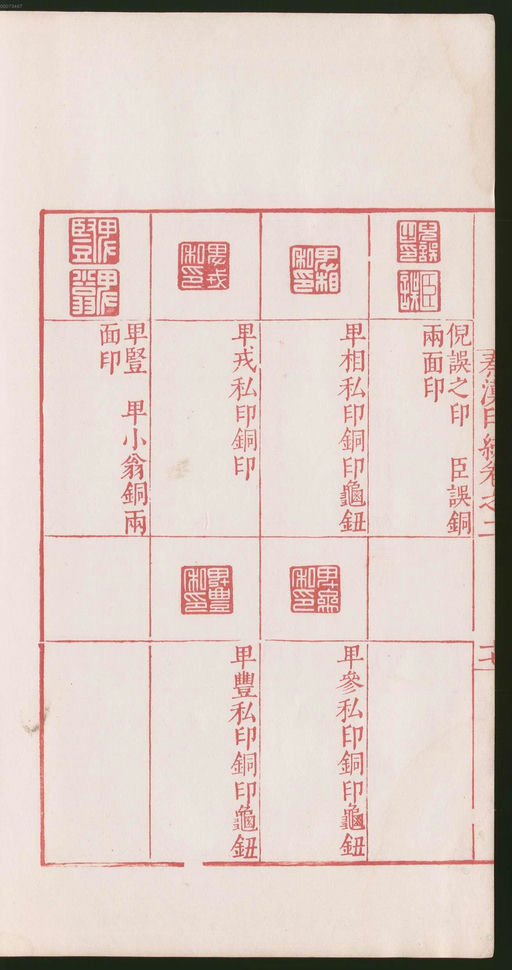 00073467
秦漢印統卷之二
倪誤之印　臣誤銅
兩面印
卑相私印銅印龜鈕
卑參私印銅印龜鈕
卑戎私印銅印
卑豐私印銅印龜鈕
卑豎　卑小翁銅兩
面印